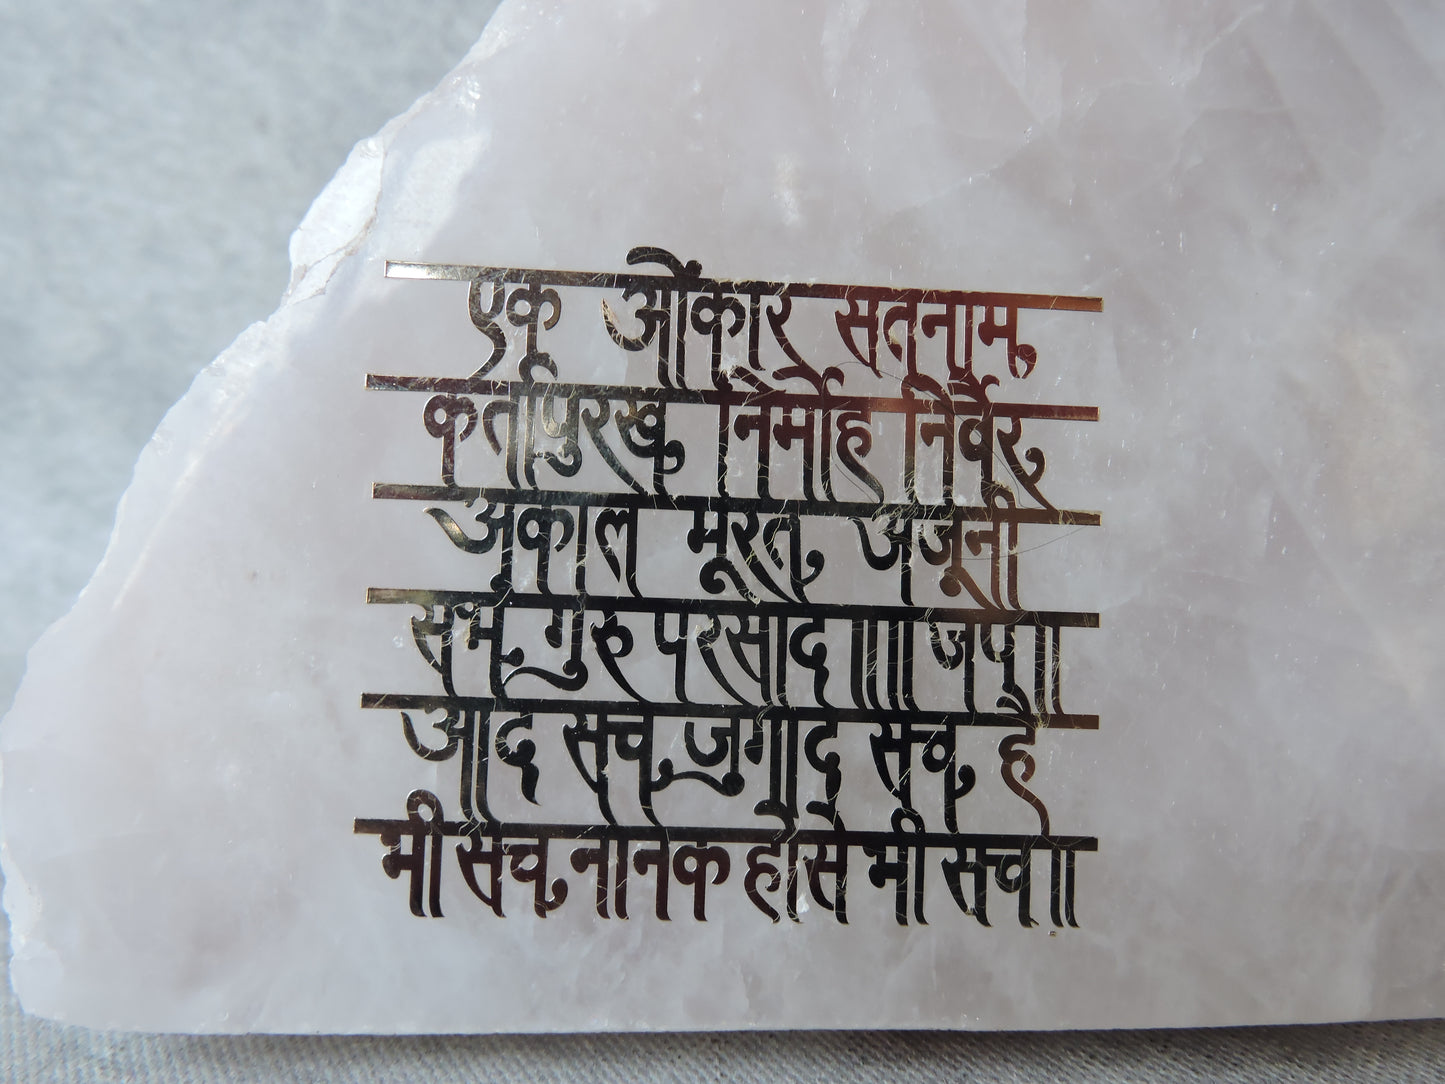 एक ओंकार सतनाम,
कर्तापुरख, निर्मोह निर्वैर,
अकाल मूरत, अजूनी
सभं, गुरु परसाद ॥॥ जप ॥
आद सच, जुगाद सच, है
भी सच, नानक होसे भी सच ॥